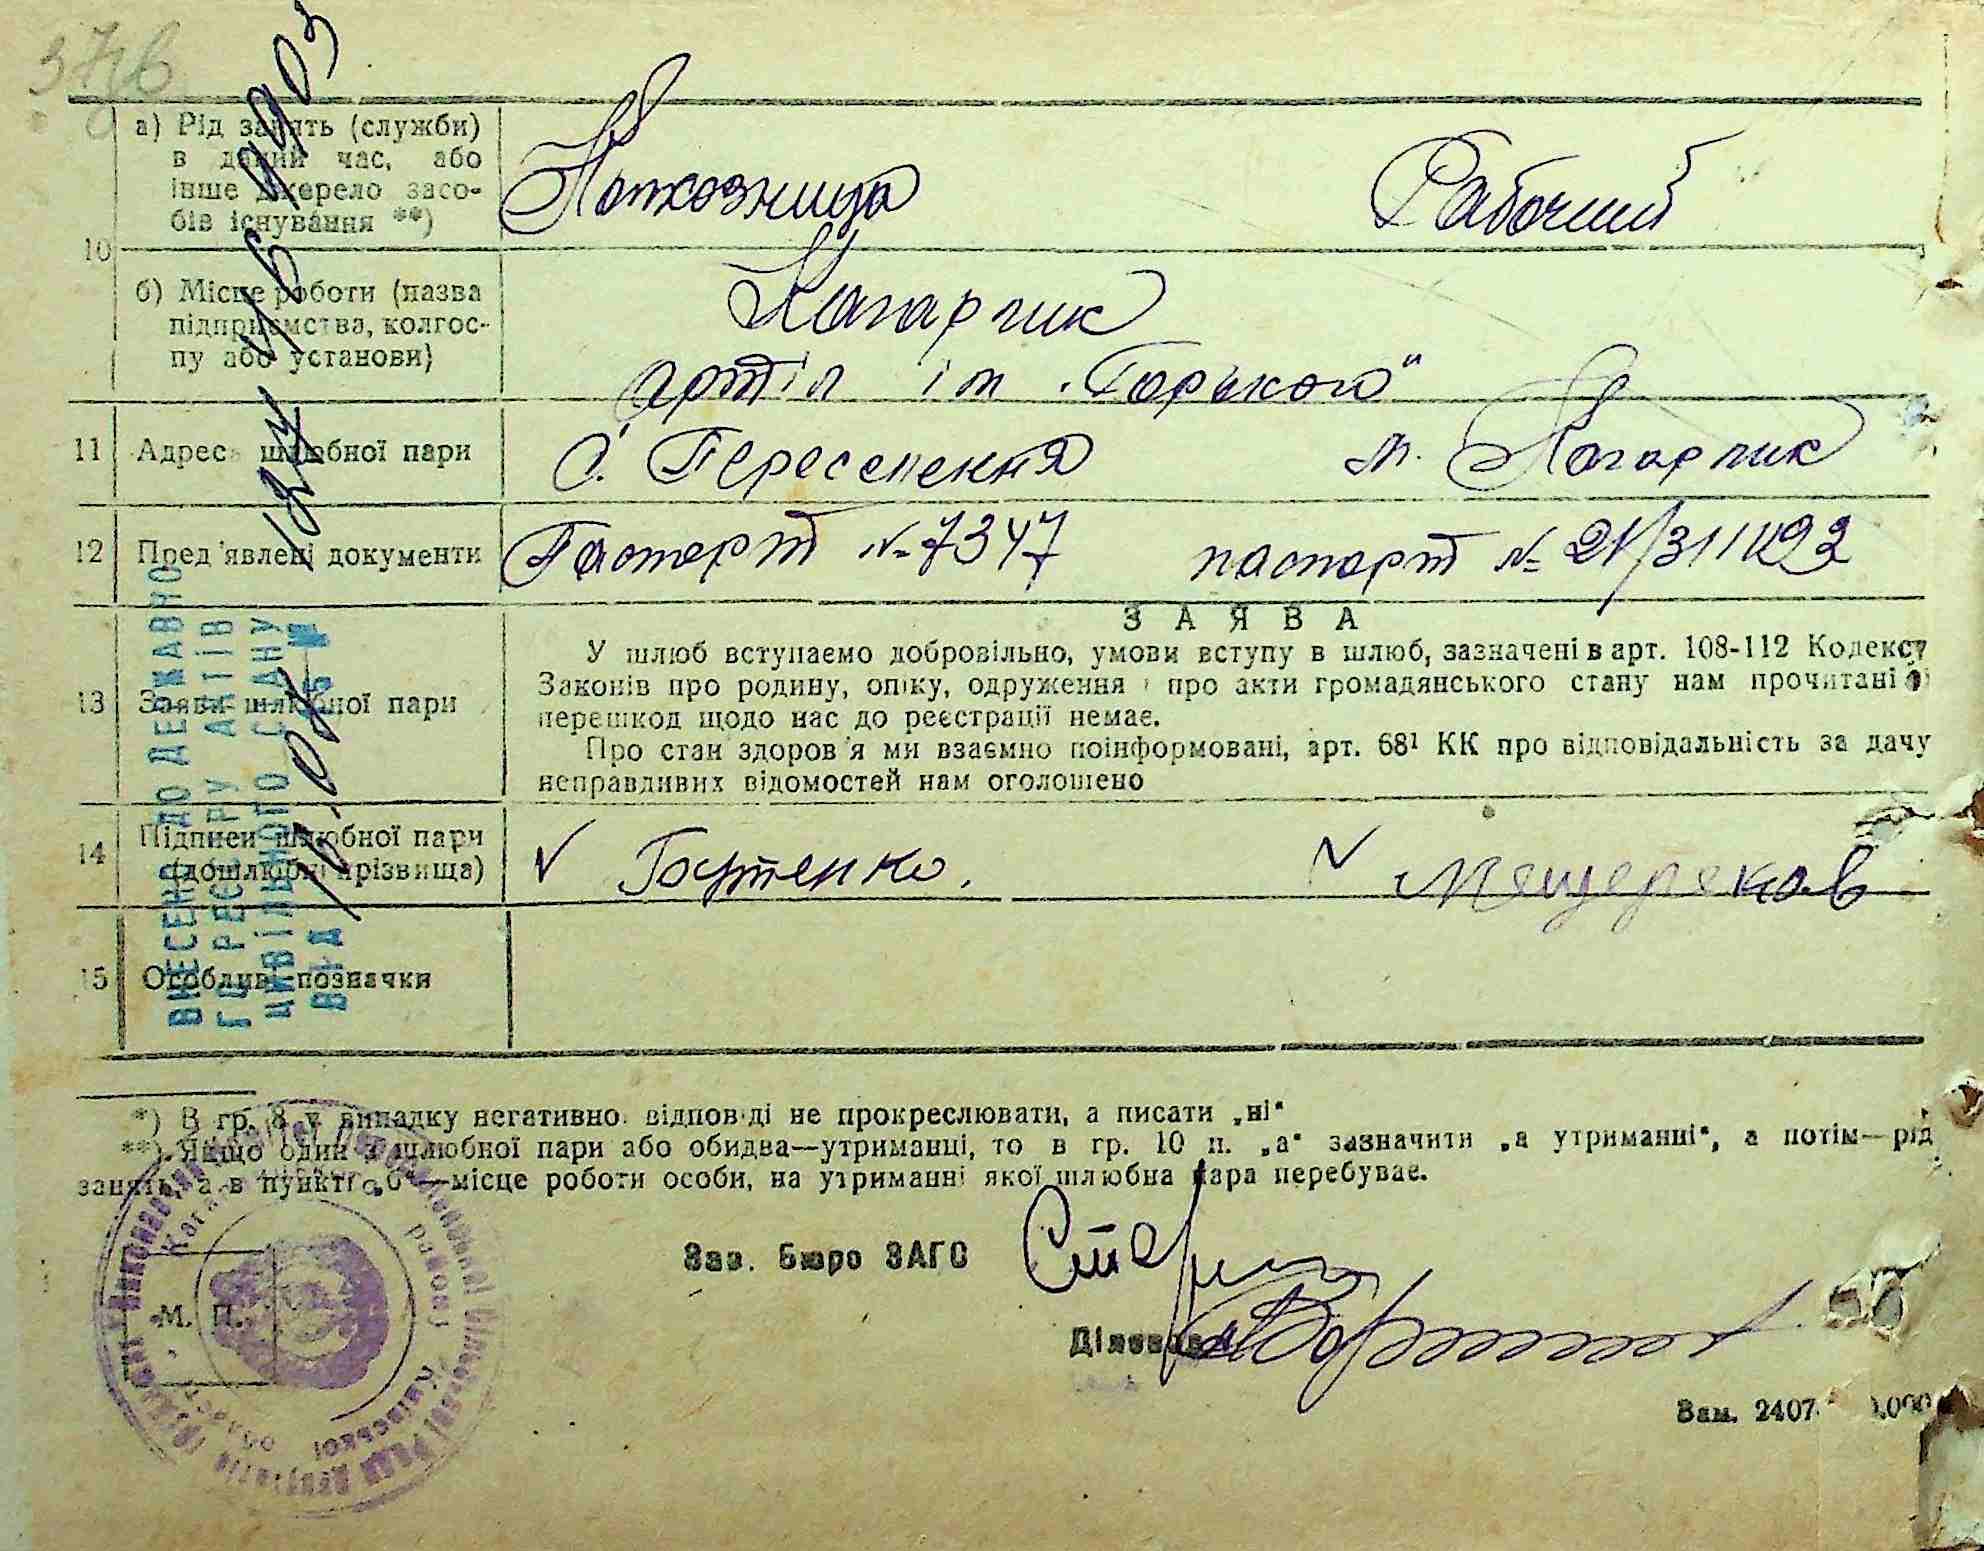 10
а) Рід занять (служби)
в даний час, або
інше джерело засо-
бів існування **)
Колхозница Рабочий
б) Місце роботи (назва
підприємства, колгос-
пу або установи)
Кагарлик
артіл ім. „Горького“
11 Адреса шлюбної пари
с. Переселення м. Кагарлик
12 Пред'явлені документи
Паспорт № 7347 паспорт №
13 Заяви шлюбної пари
ЗАЯВА
У шлюб вступаємо добровільно, умови вступу в шлюб, зазначені в арт. 108-112 Кодексу
Законів про родину, опіку, одруження і про акти громадянського стану нам прочитані й
перешкод щодо нас до реєстрації немає.
Про стан здоров'я ми взаємно поінформовані, арт. 68¹ КК про відповідальність за дачу
неправдивих відомостей нам оголошено
14 Підписи шлюбної пари
(дошлюбні прізвища)
Бутенко. Мещереков
15 Особливі позначки
ВНЕСЕНО ДО ДЕРЖАВНО
ГО РЕЄСТРУ АКТІВ
ЦИВІЛЬНОГО СТАНУ
ВІД №
*) В гр. 8 у випадку негативної відповіді не прокреслювати, а писати „ні“
**) Якщо один з шлюбної пари або обидва—утриманці, то в гр. 10 п. „а“ зазначити „а утриманні“, а потім—рід
занять, а в пункті „б“—місце роботи особи, на утриманні якої шлюбна пара перебуває.
Зав. Бюро ЗАГС
М. П.
Діловод
Зам. 2407